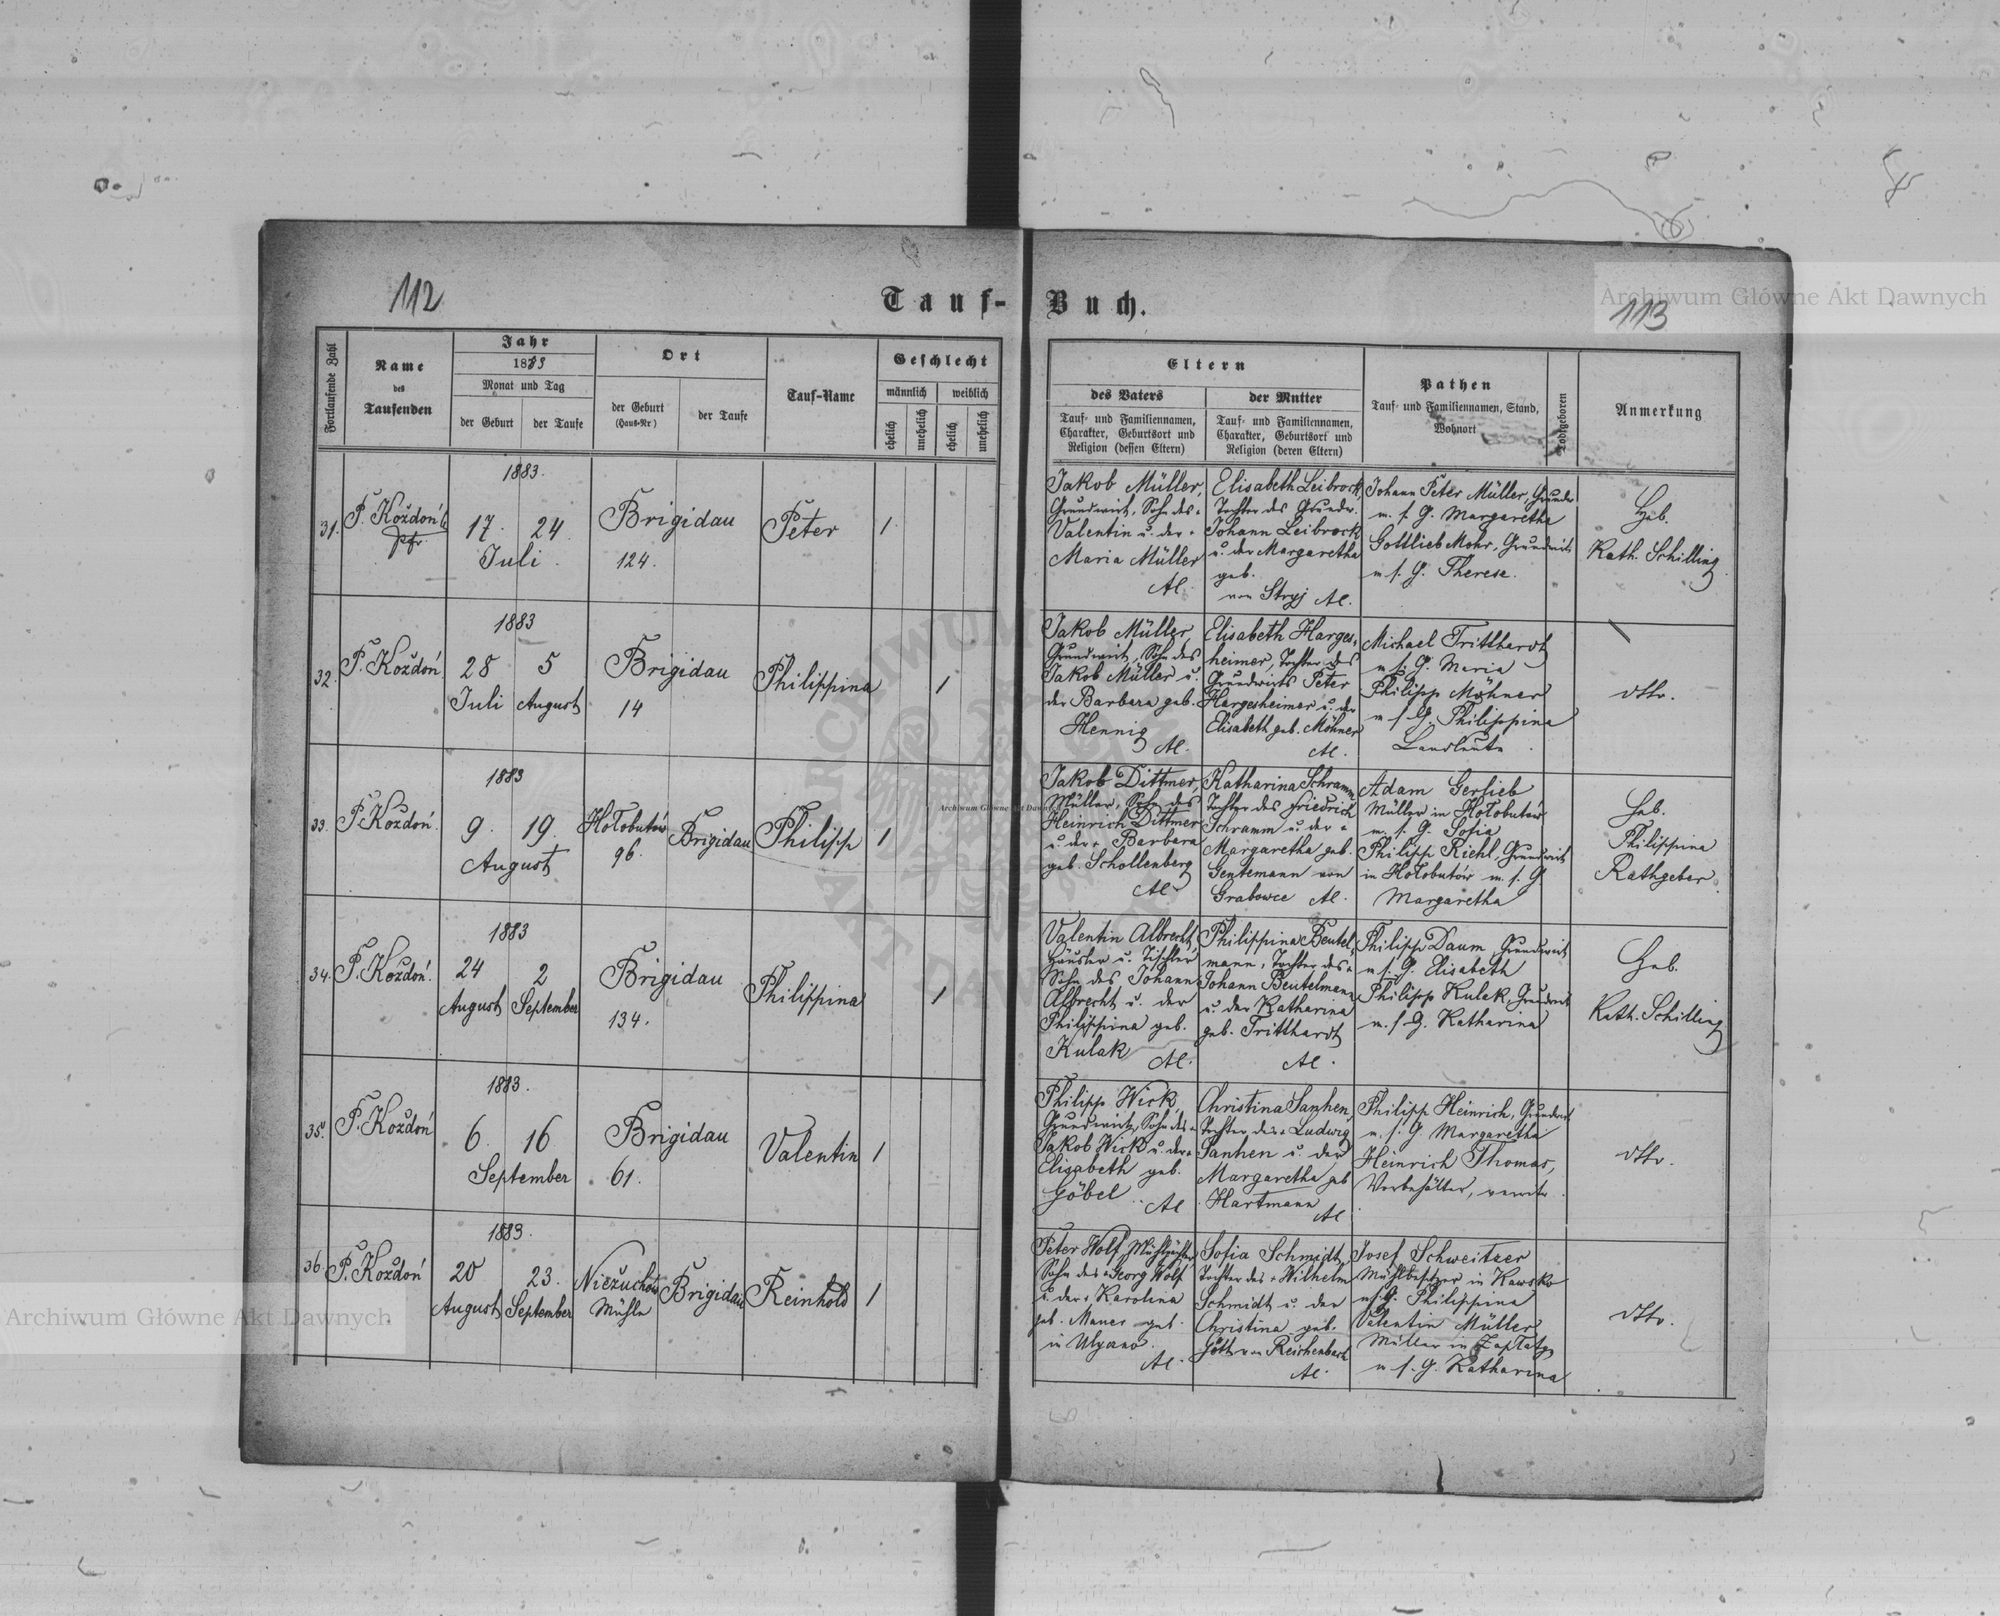 112
Tauf-
Buch.
113
Archiwum Główne Akt Dawnych
Fortlaufende Zahl
Name
des
Taufenden
Jahr
1883
Monat und Tag
der Geburt
der Taufe
Ort
der Geburt
(Haus-Nr)
der Taufe
Tauf-Name
Geschlecht
männlich
weiblich
ehelich
unehelich
ehelich
unehelich
Eltern
des Vaters
Tauf- und Familiennamen,
Charakter, Geburtsort und
Religion (dessen Eltern)
der Mutter
Tauf- und Familiennamen,
Charakter, Geburtsort und
Religion (deren Eltern)
Pathen
Tauf- und Familiennamen, Stand,
Wohnort
Todtgeboren
Anmerkung
31.
P. Koždoń
Pfr.
1883.
17. 24
Juli
Brigidau
124.
Peter
1
Jakob Müller,
Grundwirt, Sohn des +
Valentin u. der +
Maria Müller
AC.
Elisabeth Leibrock,
Tochter des Grundw.
Johann Leibrock
u. der Margaretha
geb.
von Stryj AC.
Johann Peter Müller, Grundw.
m. s. G. Margaretha
Gottlieb Mohr, Grundwirt
m s. G. Therese.
Heb.
Kath. Schilling
32.
P. Koždoń
1883
28 5
Juli August
Brigidau
14
Philippina
1
Jakob Müller,
Grundwirt, Sohn des
Jakob Müller u.
der Barbara geb.
Hennig
AC.
Elisabeth Harges-
heimer, Tochter des
Grundwirts Peter
Hargesheimer u. der
Elisabeth geb. Möhner
AC.
Michael Tritthardt
m s. G. Maria
Philipp Möhner
m s. G. Philippina
Landleute
dtto.
33.
P. Koždoń
1883
9. 19.
August
Hołobutów
96.
Brigidau
Philipp
1
Jakob Dittmer,
Müller, Sohn des
Heinrich Dittmer
u. der + Barbara
geb. Schollenberg
AC.
Katharina Schramm
Tochter des Friedrich
Schramm u. der +
Margaretha geb.
Gentemann von
Grabowce AC.
Adam Gerlieb
Müller in Hołobutów
m. s. G. Sofia
Philipp Riehl, Grundwirt
in Hołobutów m. s. G
Margaretha
Heb.
Philippina
Rathgeber.
34.
P. Koždoń.
1883
24 2
August September
Brigidau
134.
Philippina
1
Valentin Albrecht,
Häusler u. Tischler
Sohn des Johann
Albrecht u. der
Philippina geb.
Kulak AC.
Philippina Beutel-
mann, Tochter des +
Johann Beutelmann
u. der Katharina
geb. Tritthardt
AC.
Philipp Daum, Grundwirt
m s. G. Elisabeth
Philipp Kulak, Grundwirt
m. s. G. Katharina
Heb.
Kath. Schilling
35.
P. Koždoń
1883.
6. 16
September
Brigidau
61.
Valentin
1
Philipp Wick,
Grundwirt, Sohn des +
Jakob Wick u. der +
Elisabeth geb.
Göbel AC
Christina Sanhen,
Tochter des + Ludwig
Sanhen u. der
Margaretha geb
Hartmann
AC
Philipp Heinrich, Grundwirt
m. s. G Margaretha
Heinrich Thomas,
Vorbehälter,
dtto.
36.
P. Koždoń
1883.
20 23.
August September
Niežuchów
Mühle
Brigidau
Reinhold
1
Peter Wolf,
Sohn des + Georg Wolf
u. der + Karolina
geb. Mauer
in Ulyczno.
AC.
Sofia Schmidt,
Tochter des + Wilhelm
Schmidt u. der
Christina geb.
Gött von Reichenbach
AC.
Josef Schweitzer
Mühlbesitzer in Kawsko
m s. G. Philippina
Valentin Müller
Müller in
m s. G. Katharina
dtto.
Archiwum Główne Akt Dawnych
Archiwum Główne Akt Dawnych